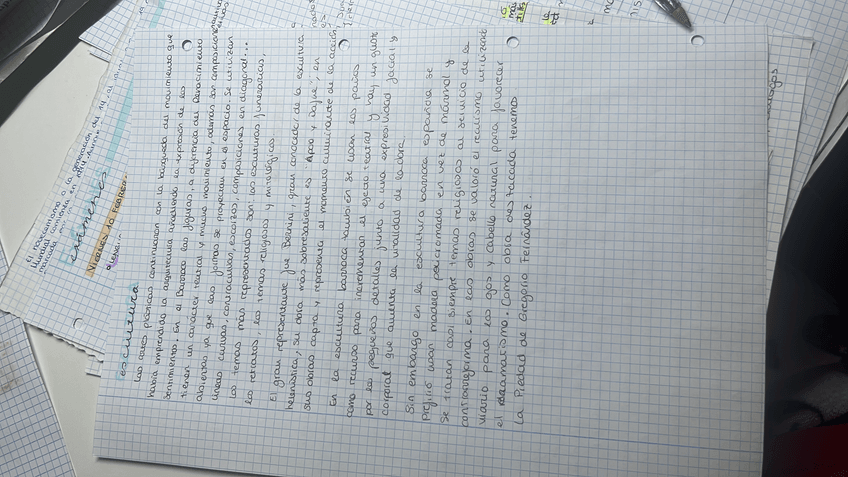 escultura
Las artes plásticas continuaron con la búsqueda del movimiento que
había emprendido la arquitectura añadiendo la expresión de los
sentimientos. En el Barroco las figuras, a diferencia del Renacimiento
tienen un carácter teatral y mucho movimiento, además son composiciones
abiertas ya que las formas se proyectan en el espacio. Se utilizan
líneas curvas, contracurvas, escorzos, composiciones en diagonal...
Los temas más representados son: las esculturas funerarias,
los retratos, los temas religiosos y mitológicos
El gran representante fue Bernini, gran conocedor de la escultura
helenística, su obra más sobresaliente es Apolo y Dafne, en
sus obras capta y representa el momento culminante de la acción
En la escultura barroca también se usan los paños
como recurso para incrementar el efecto teatral y hay un gusto
por los pequeños detalles junto a una expresividad facial y
corporal que aumenta la viralidad de la obra.
Sin embargo en la escultura barroca española se
prefirió usan madera policromada en vez de mármol y
se tratan casi siempre temas religiosos al servicio de la
contrarreforma. En las obras se valoró el realismo utilizando
vidrio para los ojos y cabello natural para favorecer
el dramatismo. Como obra destacada tenemos
la Piedad de Gregorio Fernández.
exámenes
VIERNES 10 FEBRERO